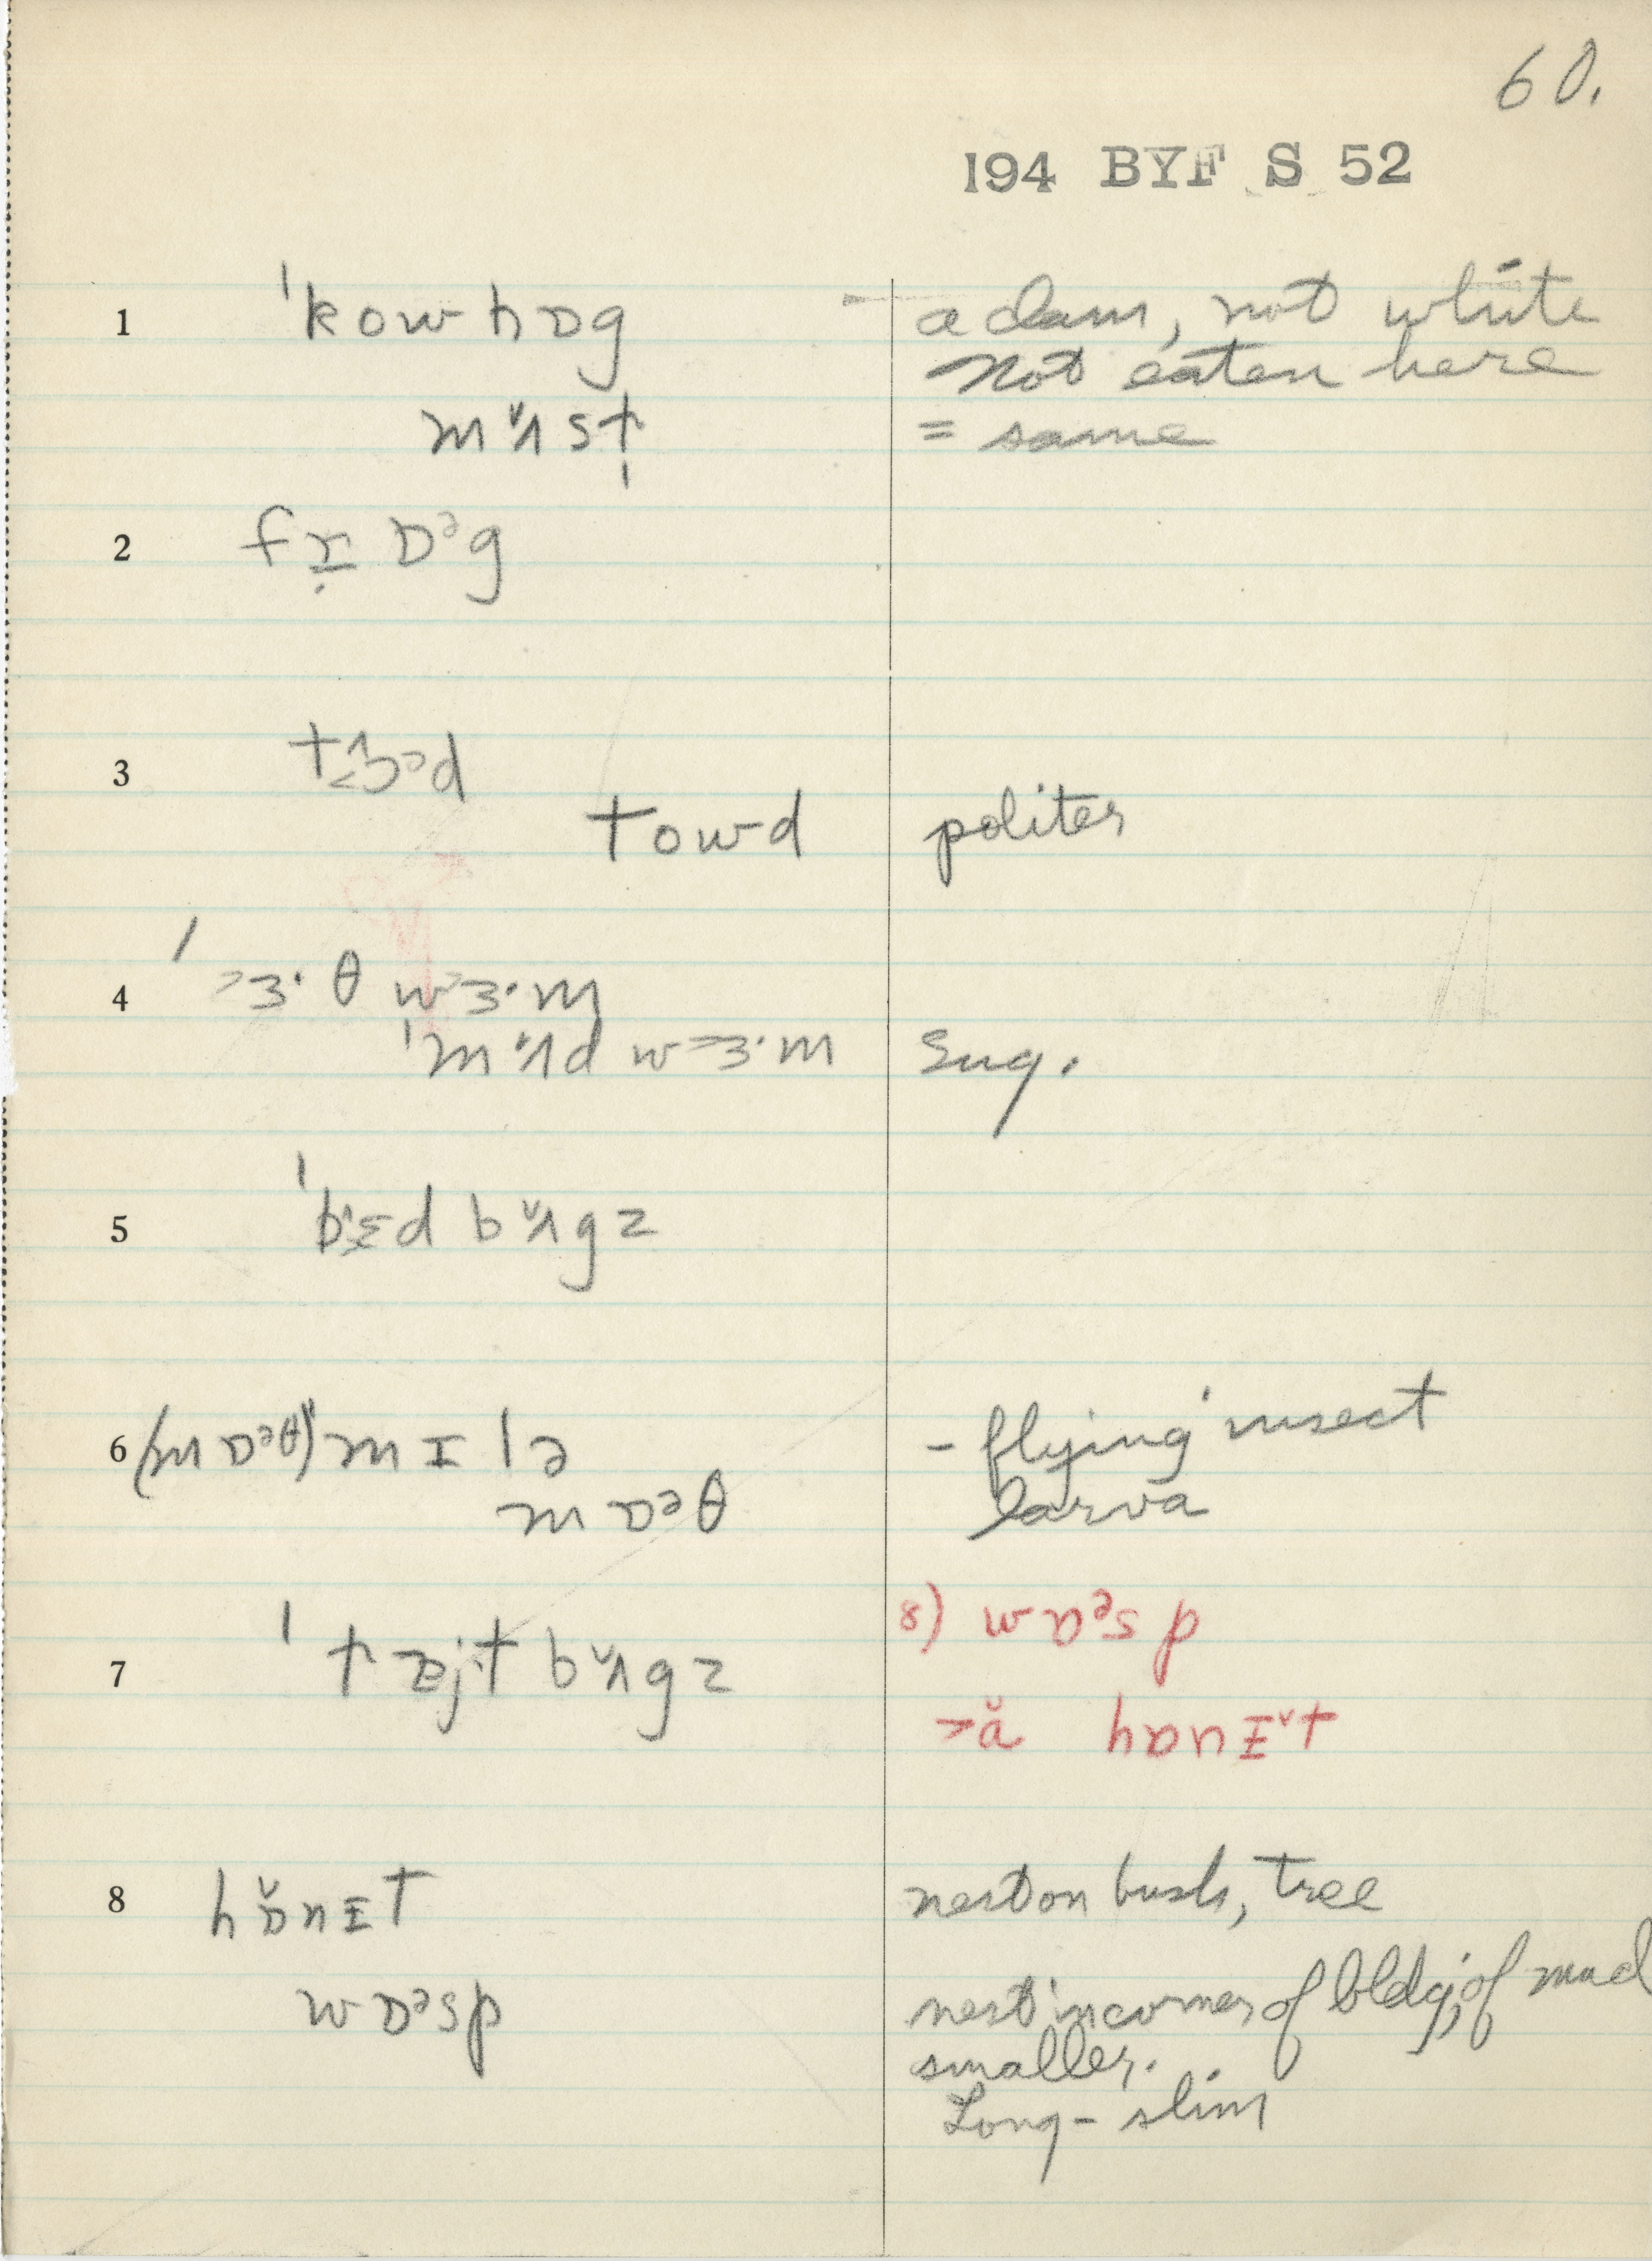 60.
194 BYF S 52
1 ˈkowhɒg a clam, not white
not eaten here
mʌ̌st = same
2 frɪ̣ ɒᵊg
3 tɔᵊd
towd politer
4 ˈɜ·θ wɜ·m
ˈmʌ̌d wɜ·m sug.
5 ˈbɛd bʌ̌gz
6 (mɒᵊθ) mɪlə - flying insect
mɒᵊθ larva
7 ˈtɐjt bʌ̌gz 8) wɒᵊsp
>ǎ hɒnɪ̌t
8 hɒ̌nɪt nest on bush, tree
wɒᵊsp nest in corner of bldg, of mud
smaller.
Long - slim